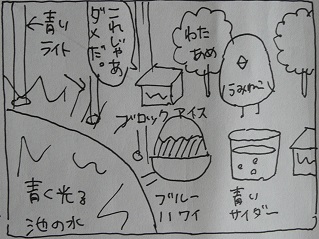 ←青い
ライト
これじゃあ
ダメだ。
わた
あめ
うみねこ
ブロックアイス
青く光る
池の水
ブルー
ハワイ
青い
サイダー